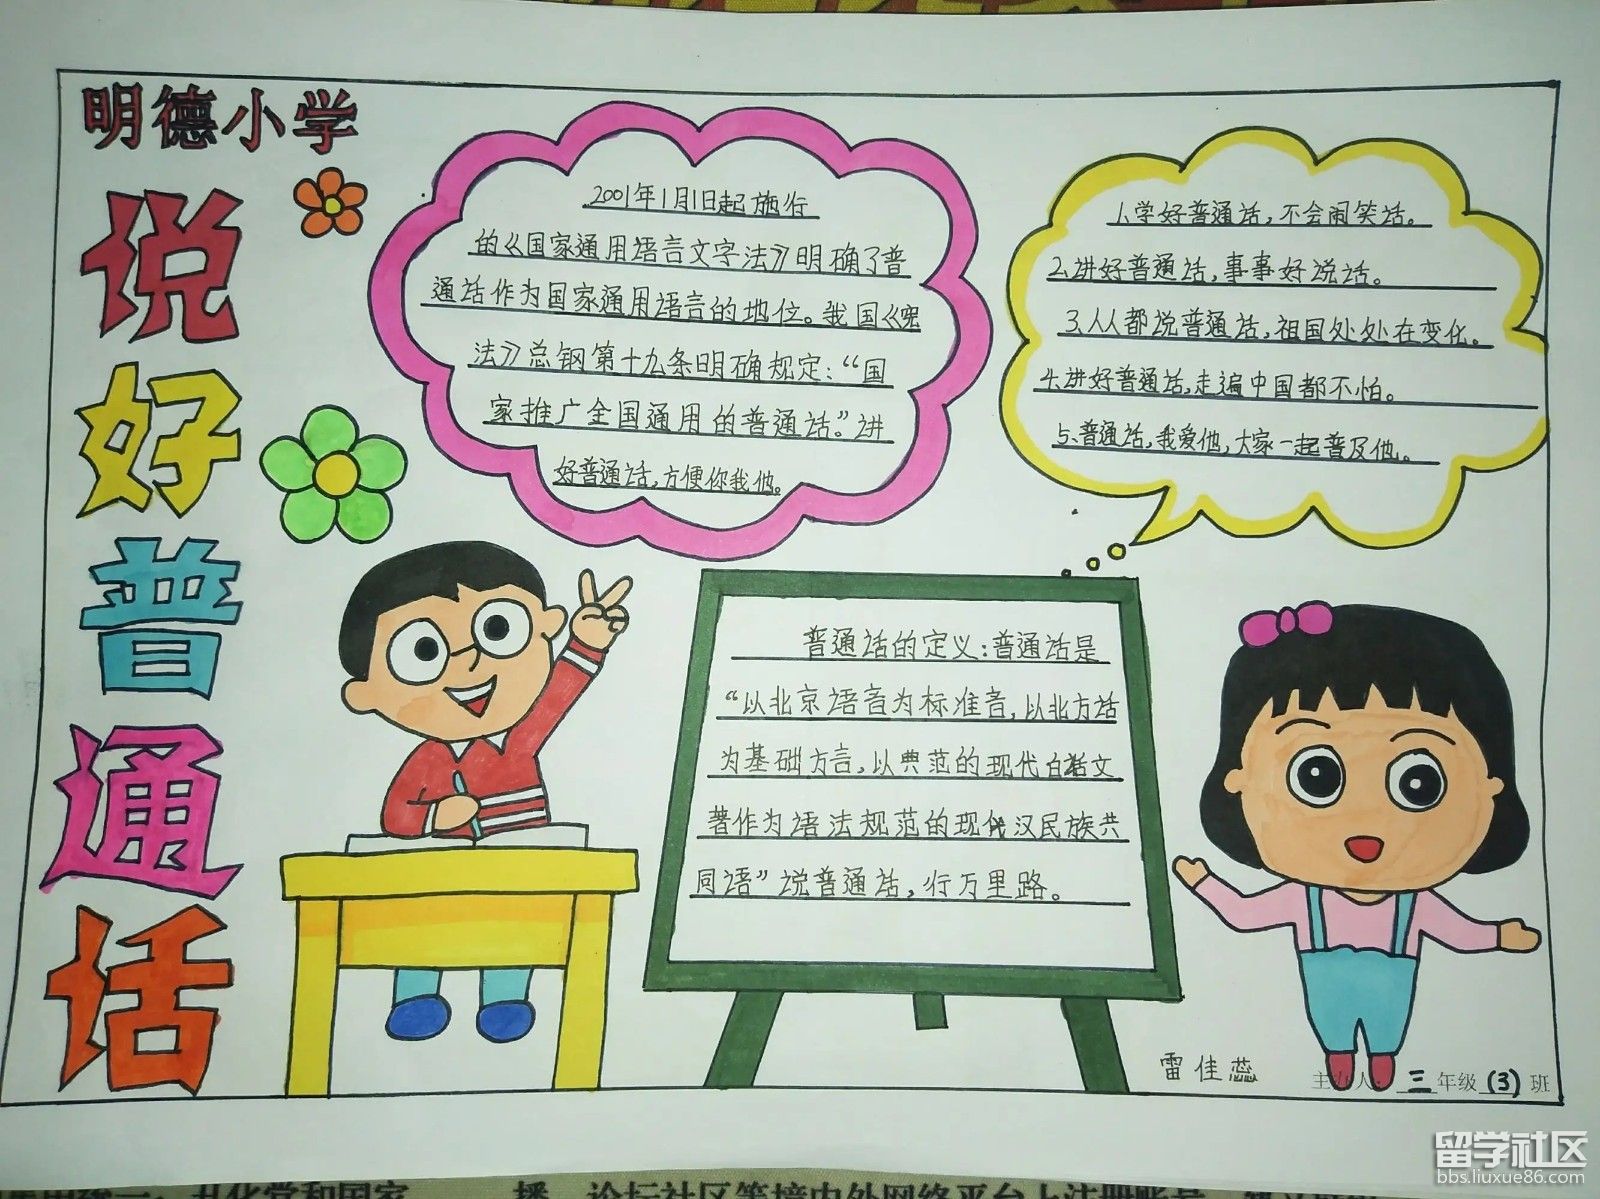 明德小学
说好普通话
2001年1月1日起施行
的《国家通用语言文字法》明确了普
通话作为国家通用语言的地位。我国《宪
法》总钢第十九条明确规定:“国
家推广全国通用的普通话。”讲
好普通话,方便你我他。
1.学好普通话,不会闹笑话。
2.讲好普通话,事事好说话。
3.人人都说普通话,祖国处处在变化。
4.讲好普通话,走遍中国都不怕。
5、普通话,我爱他,大家一起普及他。
普通话的定义:普通话是
“以北京语音为标准音,以北方话
为基础方言,以典范的现代白话文
著作为语法规范的现代汉民族共
同语”说普通话,行万里路。
雷佳蕊
主办人: 三年级(3)班
留学社区
bbs.liuxue86.com